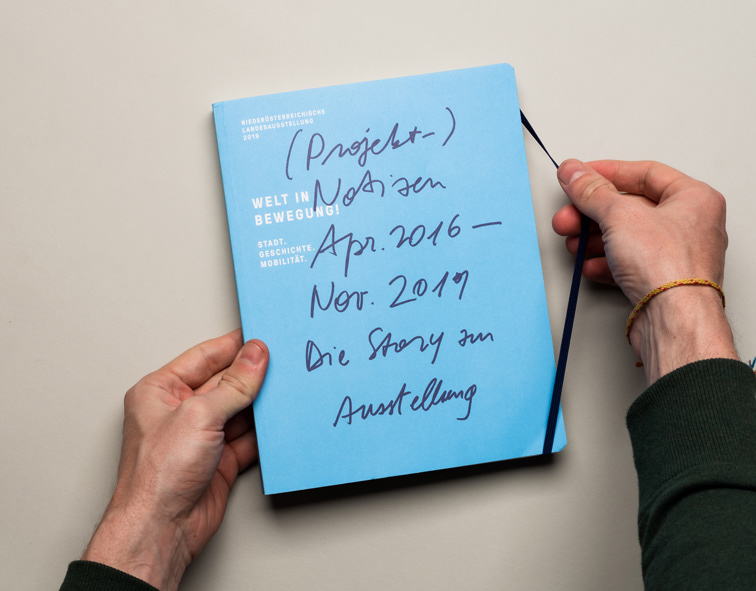 NIEDERÖSTERREICHISCHE
LANDESAUSSTELLUNG
2019
(Projekt-)
Notizen
WELT IN
BEWEGUNG!
Apr. 2016 —
STADT.
GESCHICHTE.
MOBILITÄT.
Nov. 2019
Die Story zur
Ausstellung